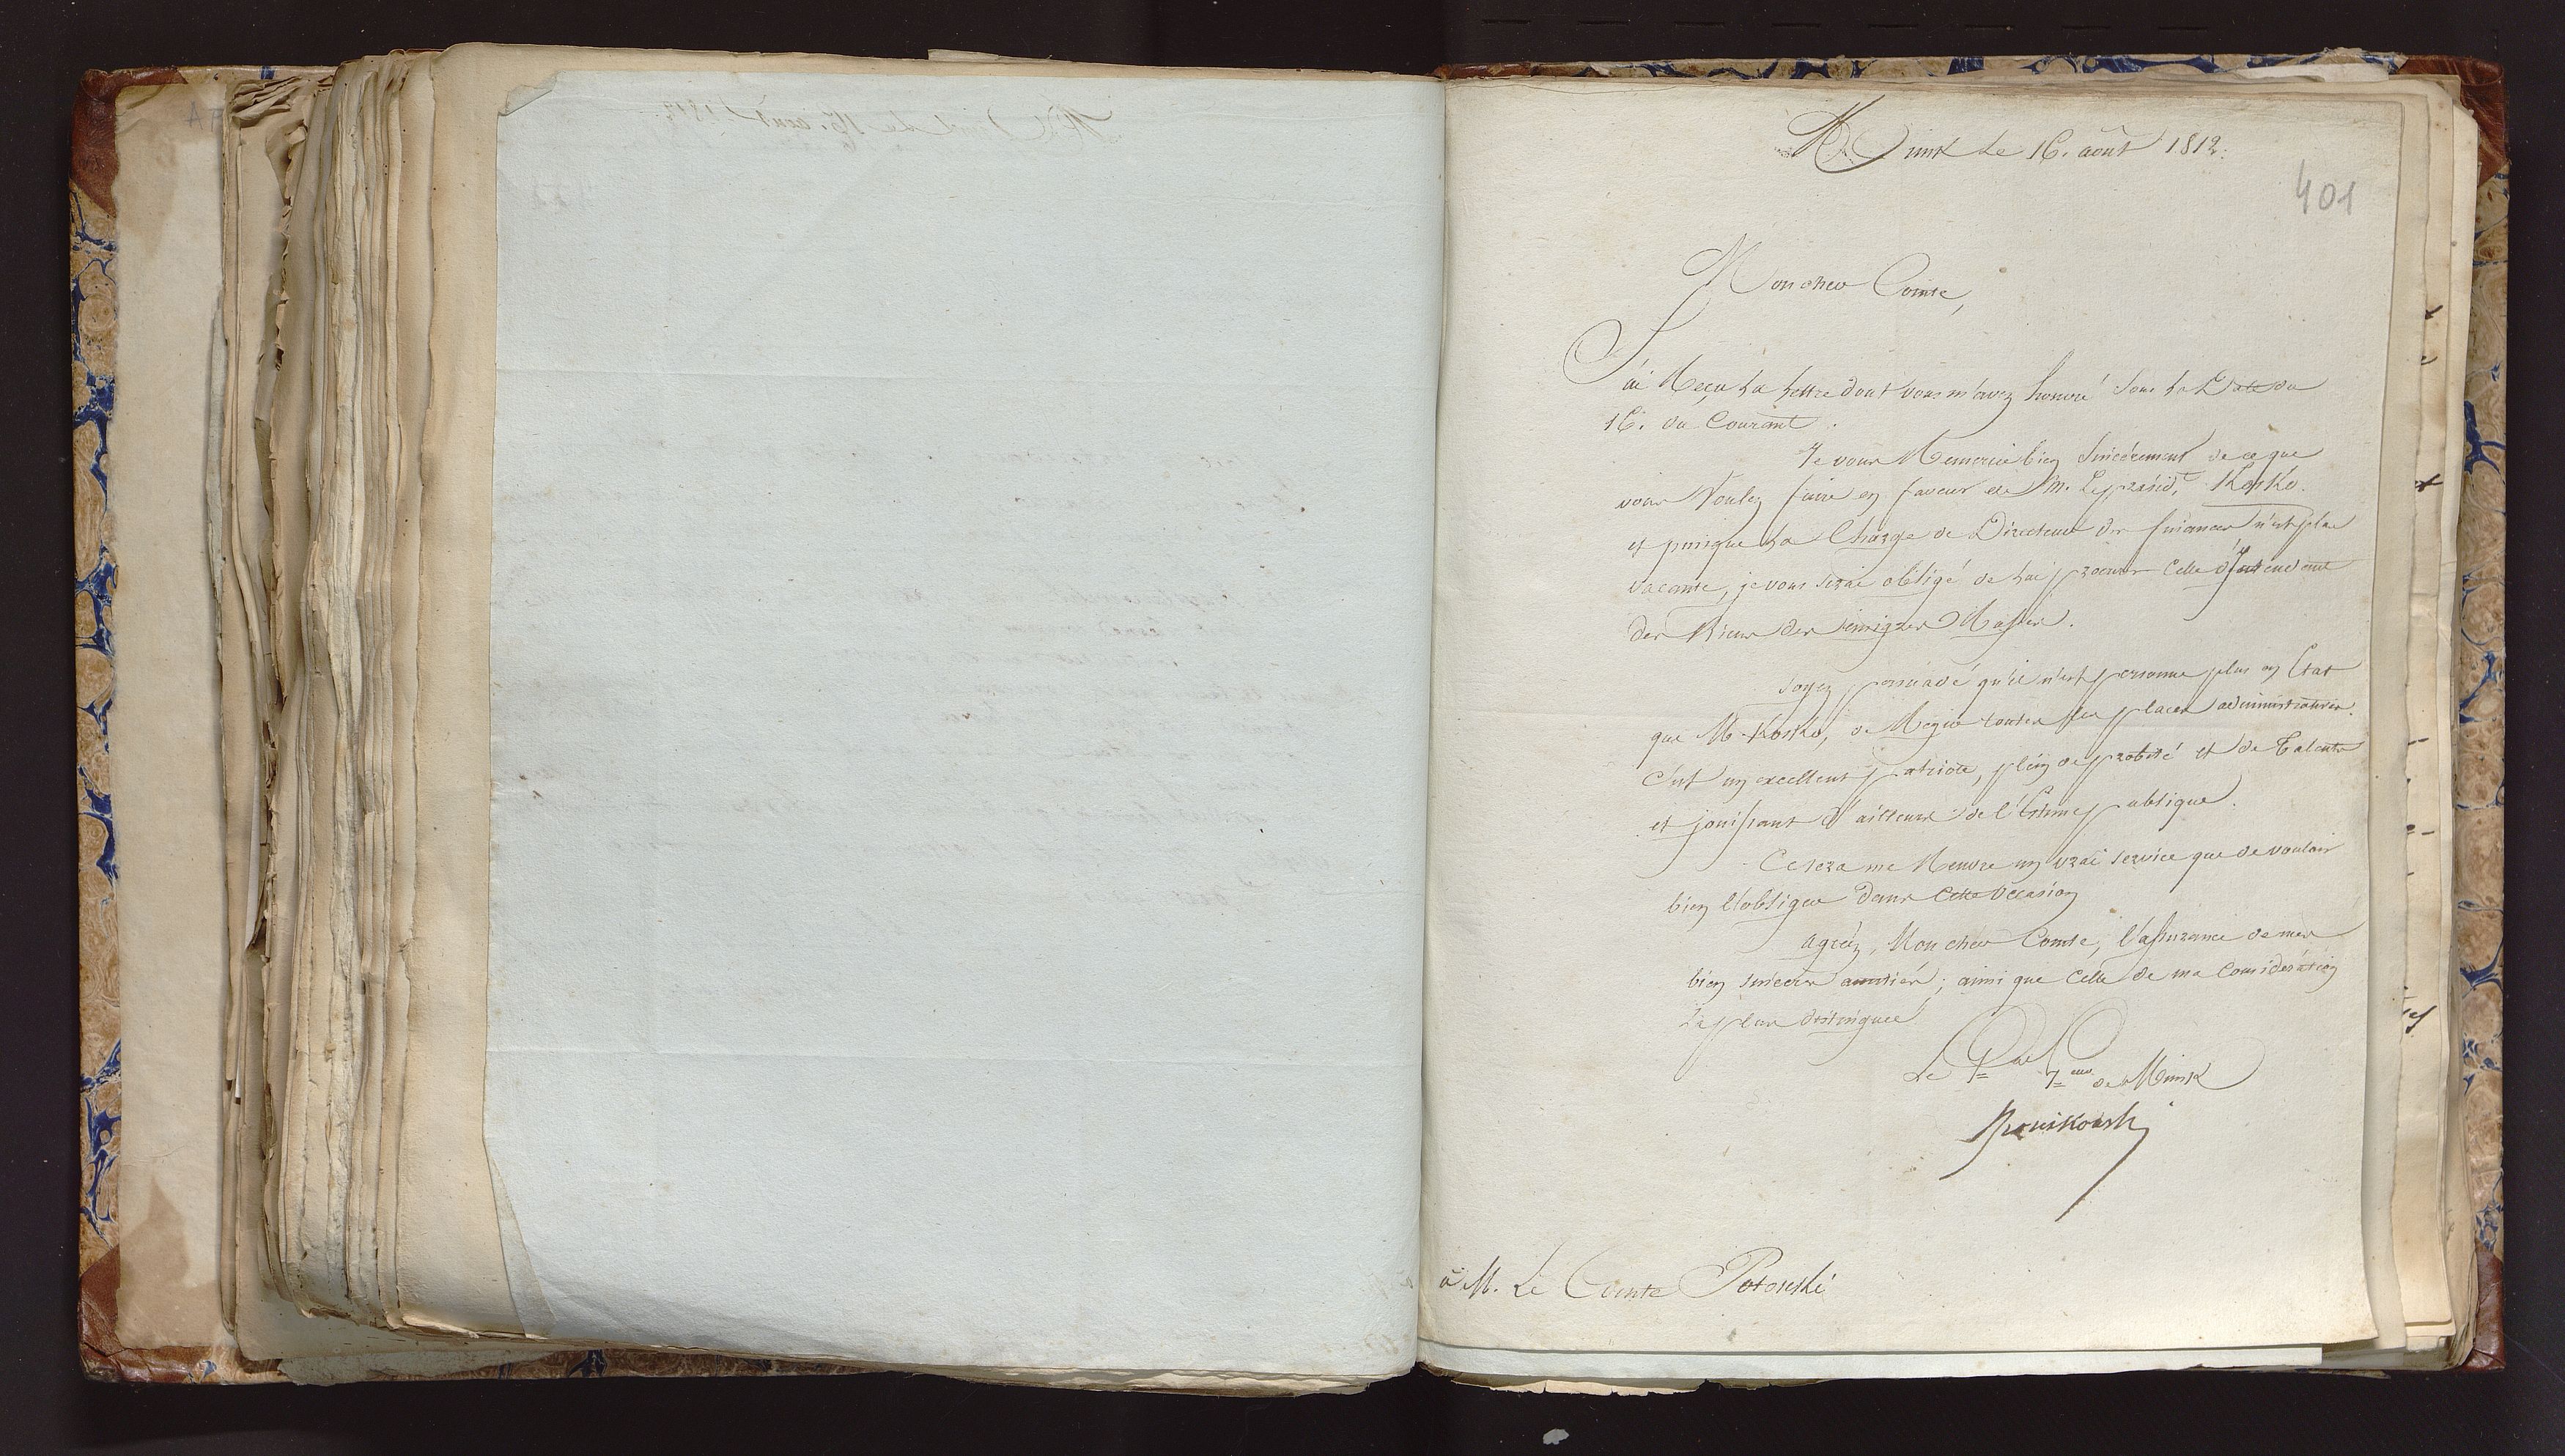 Minsk Le 16. août 1812.
401
Mon cher Comte,
J'ai Reçu la Lettre dont vous m'avez honoré sous la Date du
16. du Courant.
Je vous Remercie bien Sincérement de ce que
vous Voulez faire en faveur de M. Le présid.t Kosko.
et puisque la Charge de Directeur des finances n'est plus
vacante, je vous serai obligé de lui procurer celle d'Intendant
des Biens des émigrés Russes.
Soyez persuadé qu'il n'est personne plus en Etat
que M. Kosko, de Régir toutes les places administratives.
C'est un excellent patriote, plein de probité et de Talents
et jouissant d'ailleurs de l'Estime publique.
Ce sera me Rendre un vrai service que de vouloir
bien l'obliger dans cette occasion
Agréez, Mon cher Comte, l'assurance de mes
bien sincères amitiés; ainsi que celle de ma considération
la plus distinguée
Le G.al G.eur de Minsk
Bronikowski
à M. Le Comte Potoski